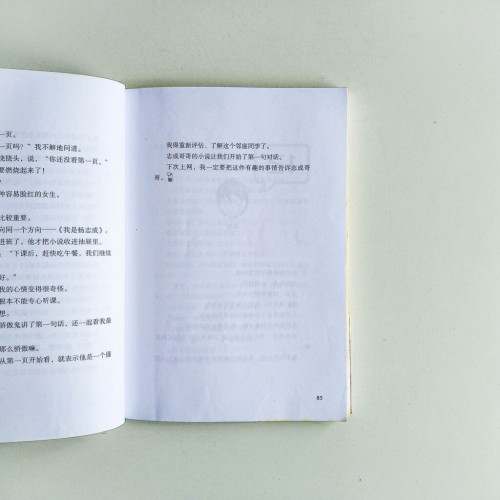 一页。
一页吗？”我不解地问道。
挠挠头，说，“你还没看第一页。”
要燃烧起来了！
种容易脸红的女生。
比较重要。
向同一个方向——《我是杨志成》。
进班了，他才把小说收进抽屉里。
：“下课后，赶快吃午餐，我们继续
好。”
我的心情变得很奇怪。
根本不能专心听课。
想。
骄傲鬼讲了第一句话，还一起看我最
那么骄傲嘛。
从第一页开始看，就表示他是一个循
我得重新评估、了解这个邻座同学了。
志成哥哥的小说让我们开始了第一句对话。
下次上网，我一定要把这件有趣的事情告诉志成哥
哥。
85